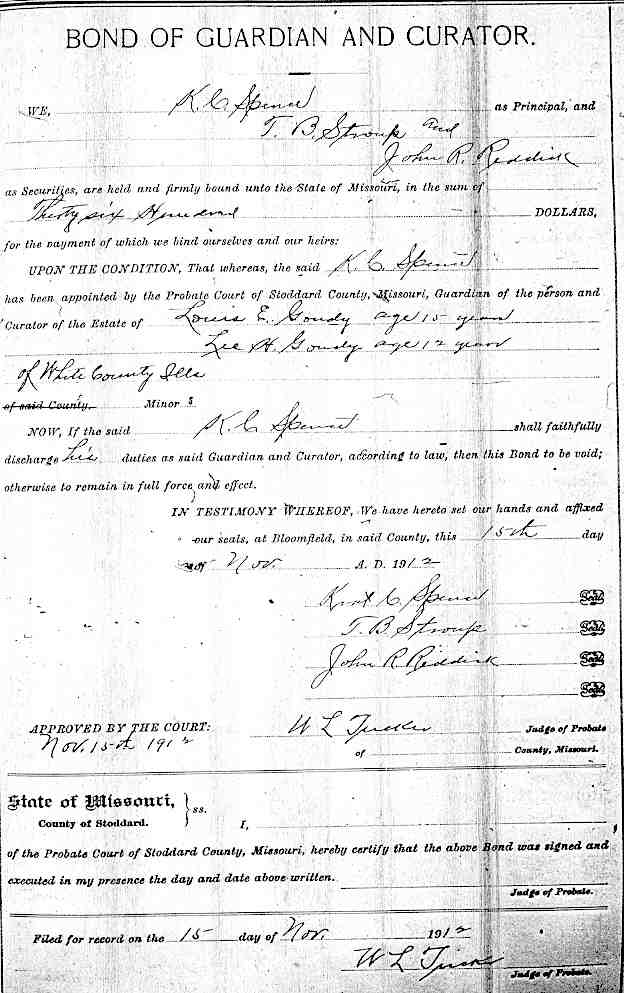 BOND OF GUARDIAN AND CURATOR.
WE, K. C. Spence as Principal, and
T. B. Stroup and
John R. Reddick
as Securities, are held and firmly bound unto the State of Missouri, in the sum of
Thirty six Hundred DOLLARS,
for the payment of which we bind ourselves and our heirs:
UPON THE CONDITION, That whereas, the said K. C. Spence
has been appointed by the Probate Court of Stoddard County, Missouri, Guardian of the person and
Curator of the Estate of Louis E. Goudy age 15 years
Lee H. Goudy age 12 years
of White County Ills
of said County. Minor s
NOW, If the said K. C Spence shall faithfully
discharge his duties as said Guardian and Curator, according to law, then this Bond to be void;
otherwise to remain in full force and effect.
IN TESTIMONY WHEREOF, We have hereto set our hands and affixed
our seals, at Bloomfield, in said County, this 15th day
of Nov. A. D. 1912
C. Spence Seal
T. B. Stroup Seal
John R Reddick Seal
Seal
APPROVED BY THE COURT: W L Tucker Judge of Probate
Nov. 15th 1912 of County, Missouri.
State of Missouri,
County of Stoddard. } ss.
I,
of the Probate Court of Stoddard County, Missouri, hereby certify that the above Bond was signed and
executed in my presence the day and date above written.
Judge of Probate.
Filed for record on the 15 day of Nov. 1912
W L Tucker Judge of Probate.